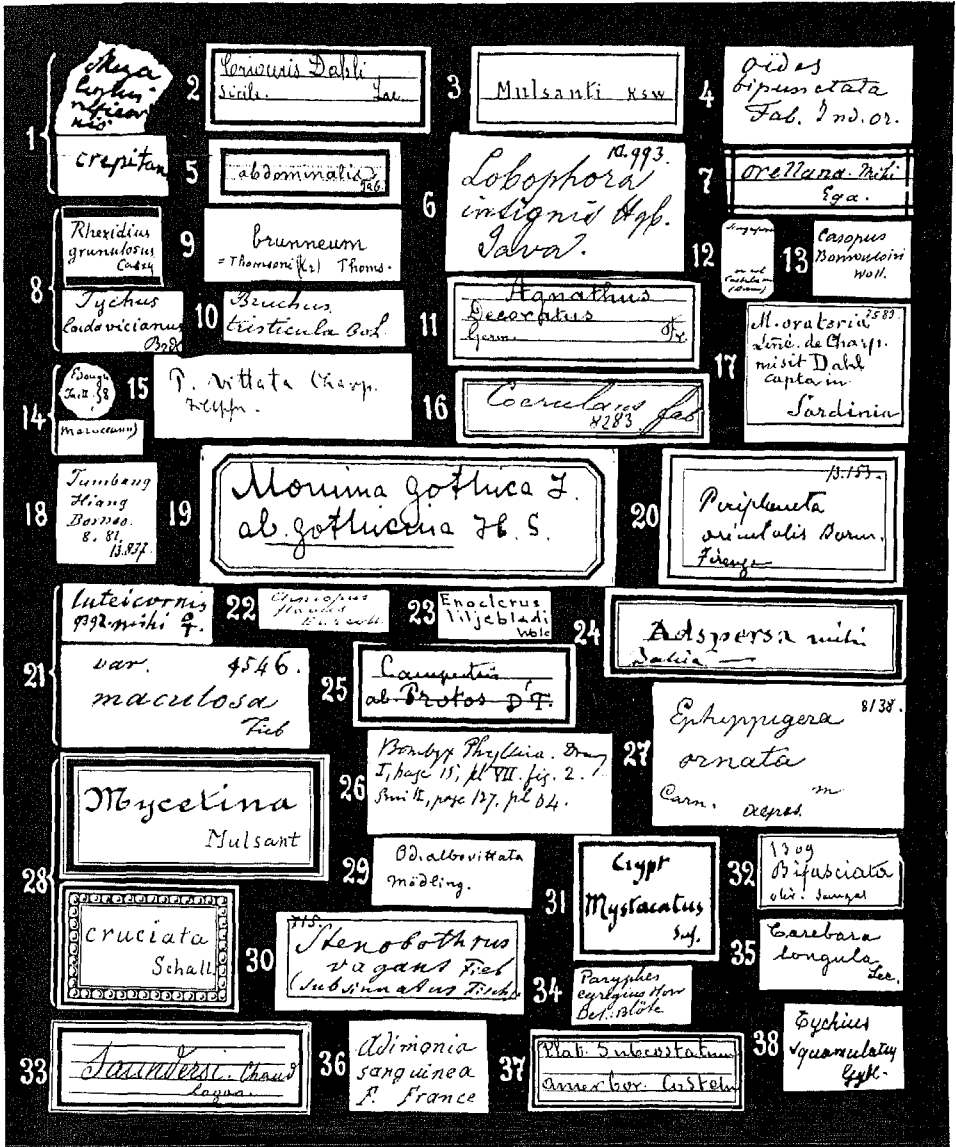 1
crepitan
2
Coriocuris Dahli
Sicile. Lac.
3
Mulsanti Ksw
4
Oides
bipunctata
Fab. Ind. or.
5
abdominalis
Fab.
6
10.993.
Lobophora
insignis Hgb.
Java.
7
orellana. Mihi
Ega.
8
Rhexidius
granulosus
Casey
Tychus
ludovicianus
9
brunneum
= Thomsoni (Kr) Thoms.
10
Bruchus
tristicula
11
Agnathus
Decoratus
Germ.
12
13
Casopus
Bonvouloiri
Woll.
14
maroccanus
15
T. vittata Charp.
16
Coerulans fab
4283
17
2583.
M. oratoria
de Charp.
misit Dahl
capta in
Sardinia
18
Tumbang
Hiang
Borneo.
8. 81.
13.837.
19
Monima gothica L.
ab. gothicina H. S.
20
13.153.
Periplaneta
orientalis Burm.
Firenze
21
luteicornis
mihi
var. 4546.
maculosa
Fieb
22
flavus
23
Enoclerus
liljebladi
Wolc
24
Adspersa mihi
Bahia
25
Campestris
ab. Protos D.T.
26
Bombyx Phyllira. Drury
I, page 15, pl VII. fig. 2.
page 127. pl 64.
27
8138.
Ephippigera
ornata
Carn. m
28
Mycetina
Mulsant
cruciata
Schall.
29
Od. albovittata
Mödling.
30
715.
Stenobothrus
vagans Fieb
(subsinuatus Fisch)
31
Crypt
Mystacatus
Suf.
32
1309
Bifasciata
oliv.
33
Saundersi. Chaud
34
Paryphes
egregius
Det. Blöte
35
Carebara
longula
Lec.
36
Adimonia
sanguinea
F. France
37
Plat. Subcostatum
amer bor. Casteln
38
Tychius
squamulatus
Gyll.